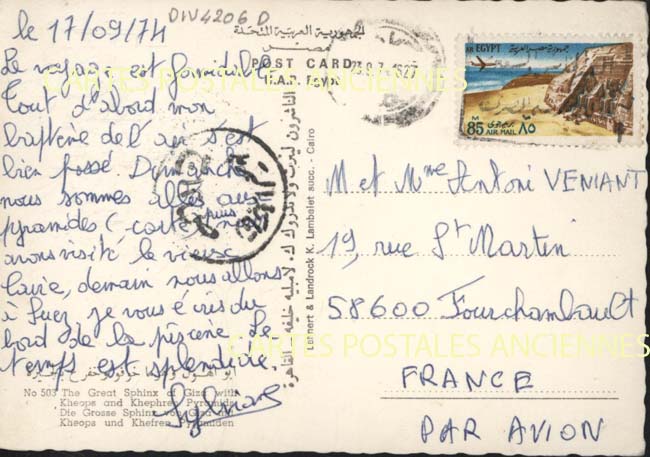 DIV4206 D
le 17/09/74
Le voyage est formidable
Tout d'abord mon
baptême de l'air s'est
bien passé. Dimanche
nous sommes allés aux
pyramides (carte) puis nous
avons visité le vieux
Caire, demain nous allons
à Suez, je vous écris du
bord de la piscine. Le
temps est splendide.
Sylviane
No 503 The Great Sphinx of Giza with
Kheops and Khephren Pyramids
Die Grosse Sphinx von Giza mit
Kheops und Khefren Pyramiden
جمهورية مصر العربية المتحدة
POST CARD
U.A.R. EGYPT
Lehnert & Landrock K. Lambelet succ. - Cairo
AR EGYPT
M 85 AIR MAIL ٨٥
M et Mme Antoni VENIANT
19, rue St Martin
58600 Fourchambault
FRANCE
PAR AVION
CARTES POSTALES ANCIENNES
CARTES POSTALES ANCIENNES